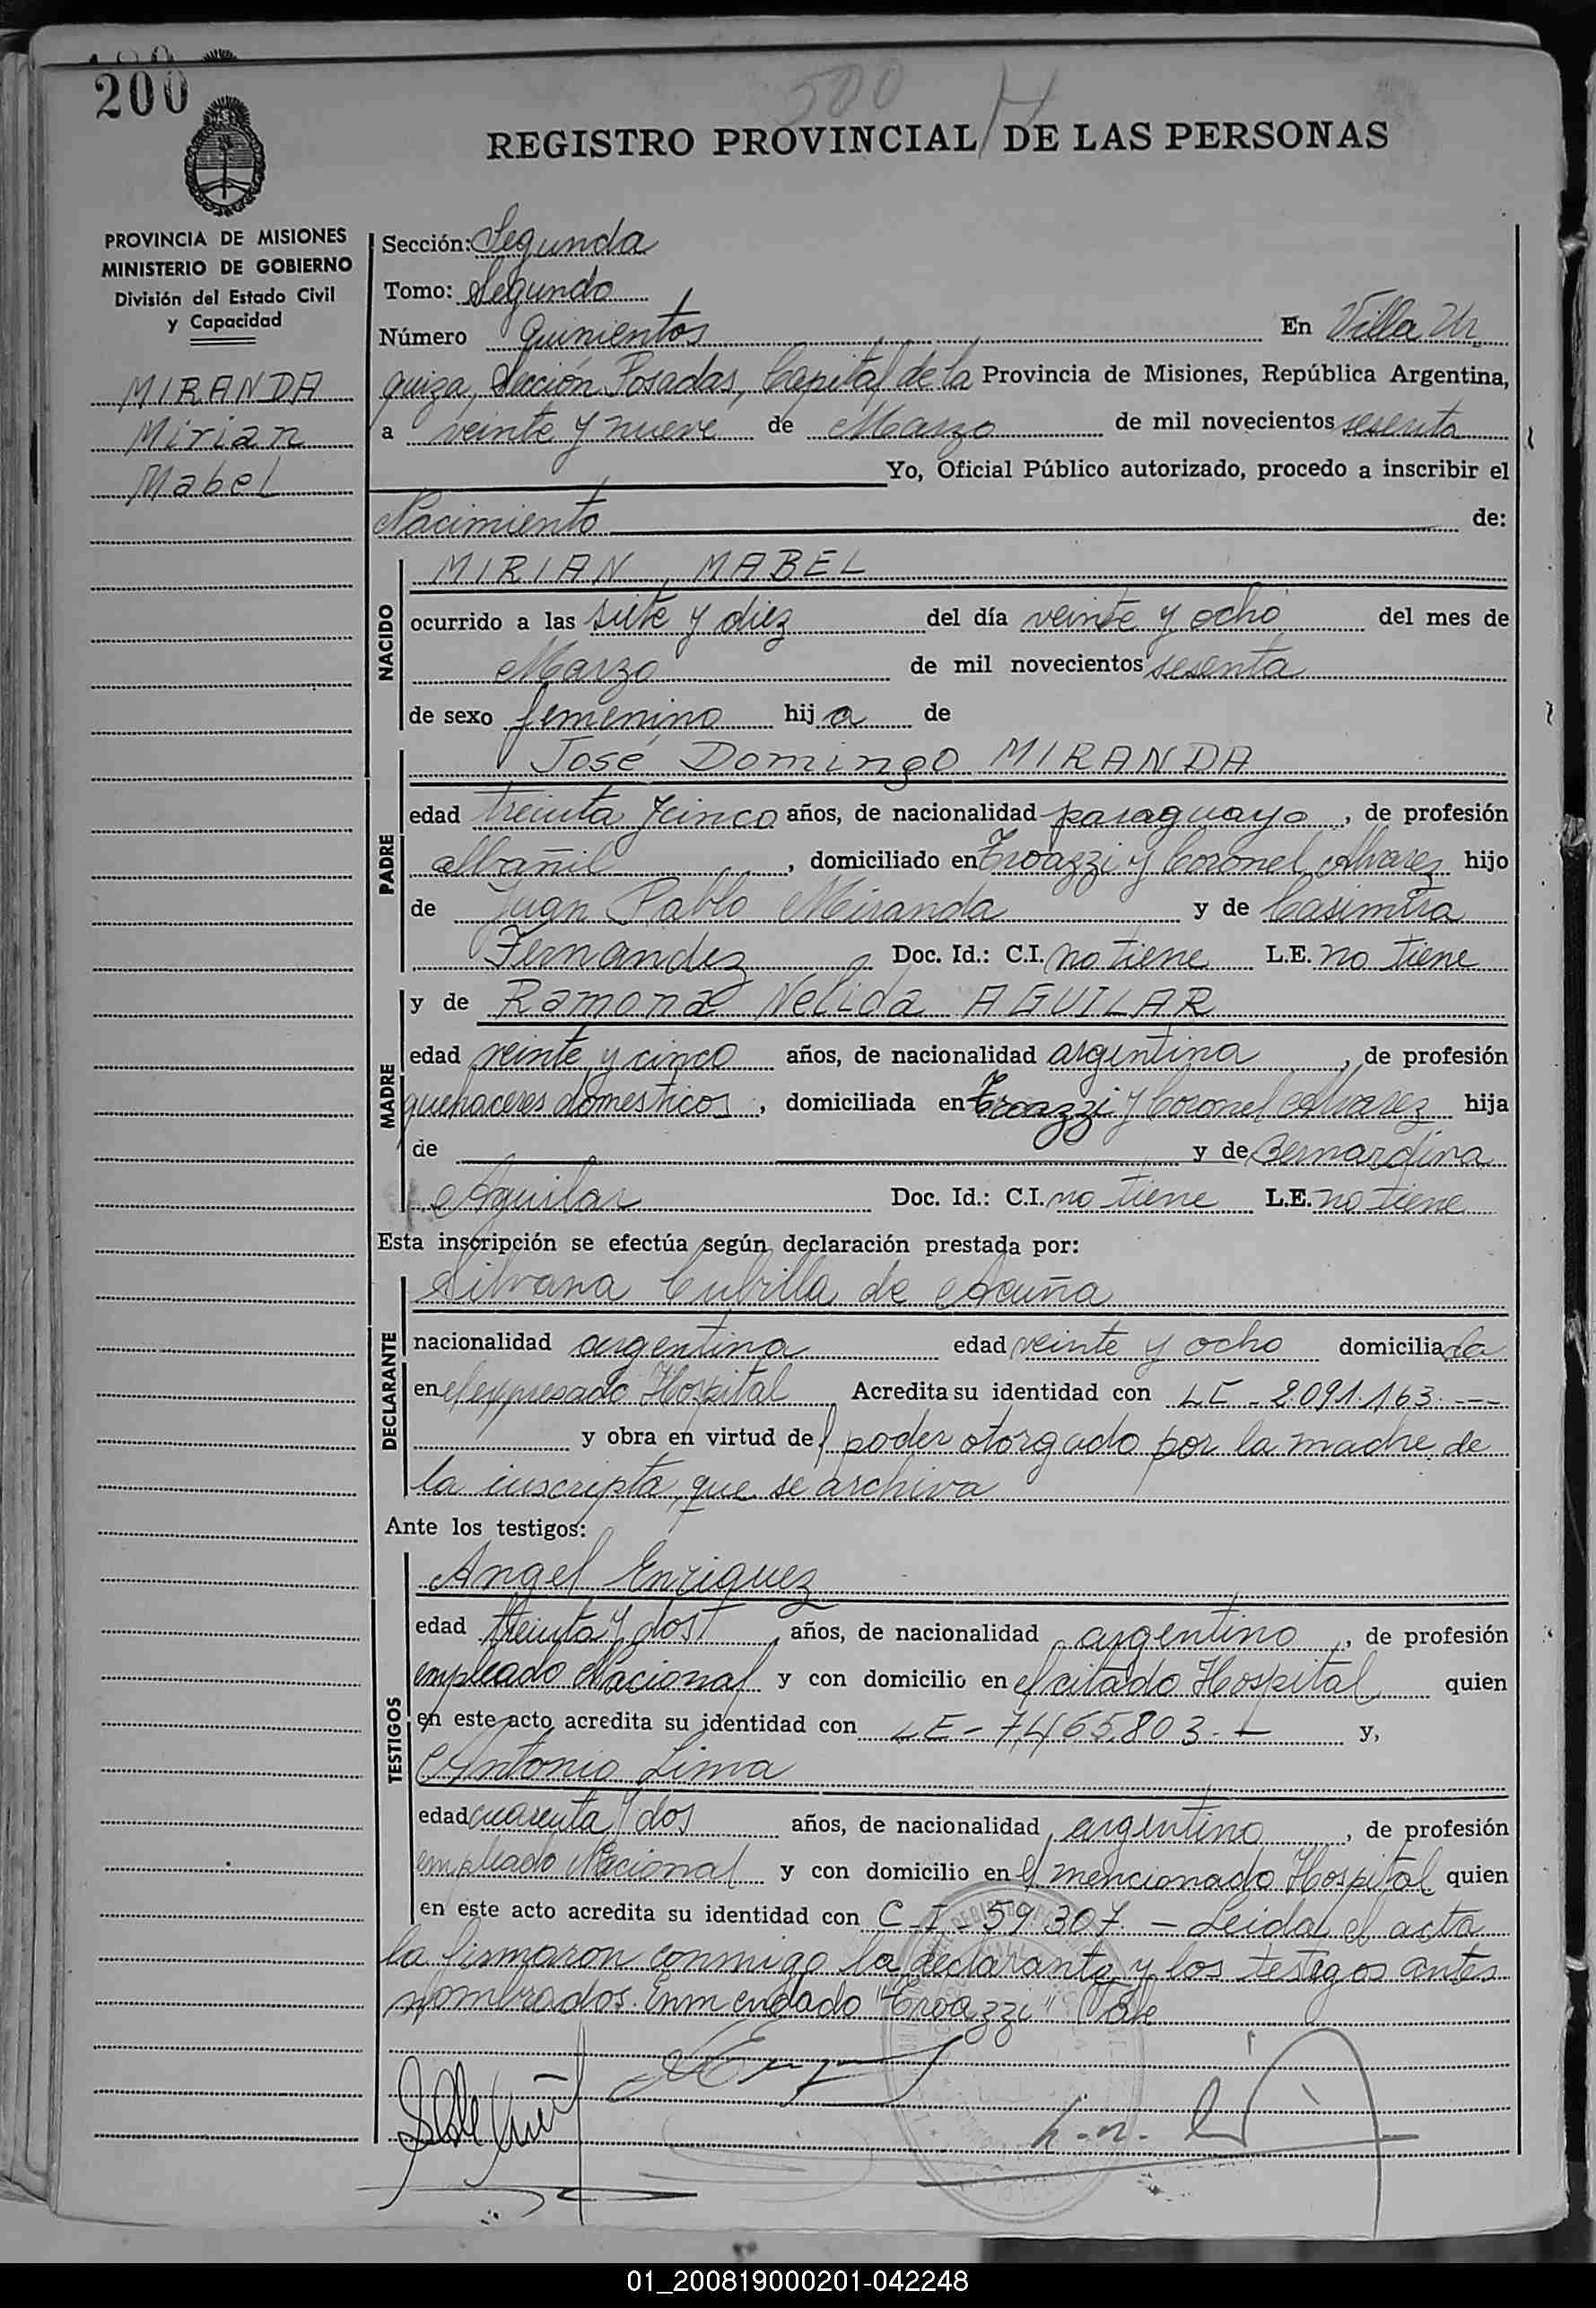 200
500
REGISTRO PROVINCIAL DE LAS PERSONAS
PROVINCIA DE MISIONES
MINISTERIO DE GOBIERNO
División del Estado Civil
y Capacidad
MIRANDA
Mirian
Mabel
Sección: Segunda
Tomo: Segundo
Número quinientos En Villa Ur
quiza, Sección Posadas, Capital de la Provincia de Misiones, República Argentina,
a veinte y nueve de Marzo de mil novecientos sesenta
Yo, Oficial Público autorizado, procedo a inscribir el
Nacimiento de:
NACIDO
MIRIAN, MABEL
ocurrido a las siete y diez del día veinte y ocho del mes de
Marzo de mil novecientos sesenta
de sexo femenino hija de
PADRE
José Domingo MIRANDA
edad treinta y cinco años, de nacionalidad paraguayo, de profesión
albañil, domiciliado en Troazzi y Coronel Alvarez hijo
de Juan Pablo Miranda y de Casimira
Fernandez Doc. Id.: C.I. no tiene L.E. no tiene
MADRE
y de Ramona Nelida AGUILAR
edad veinte y cinco años, de nacionalidad argentina, de profesión
quehaceres domesticos, domiciliada en Troazzi y Coronel Alvarez hija
de y de Bernardina
Aguilar Doc. Id.: C.I. no tiene L.E. no tiene
Esta inscripción se efectúa según declaración prestada por:
DECLARANTE
Silvana Cubilla de Acuña
nacionalidad argentina edad veinte y ocho domiciliada
en el expresado Hospital Acredita su identidad con LE - 2.091.163. ---
y obra en virtud del poder otorgado por la madre de
la inscripta, que se archiva
Ante los testigos:
TESTIGOS
Angel Enriquez
edad treinta y dos años, de nacionalidad argentino, de profesión
empleado Nacional y con domicilio en el citado Hospital quien
en este acto acredita su identidad con LE - 7,465.803. - y,
Antonio Lima
edad cuarenta y dos años, de nacionalidad argentino, de profesión
empleado Nacional y con domicilio en el mencionado Hospital quien
en este acto acredita su identidad con C.I - 59.307. - Leida el acta
la firmaron conmigo la declarante y los testigos antes
nombrados. Enmendado "Troazzi" Vale
01_200819000201-042248